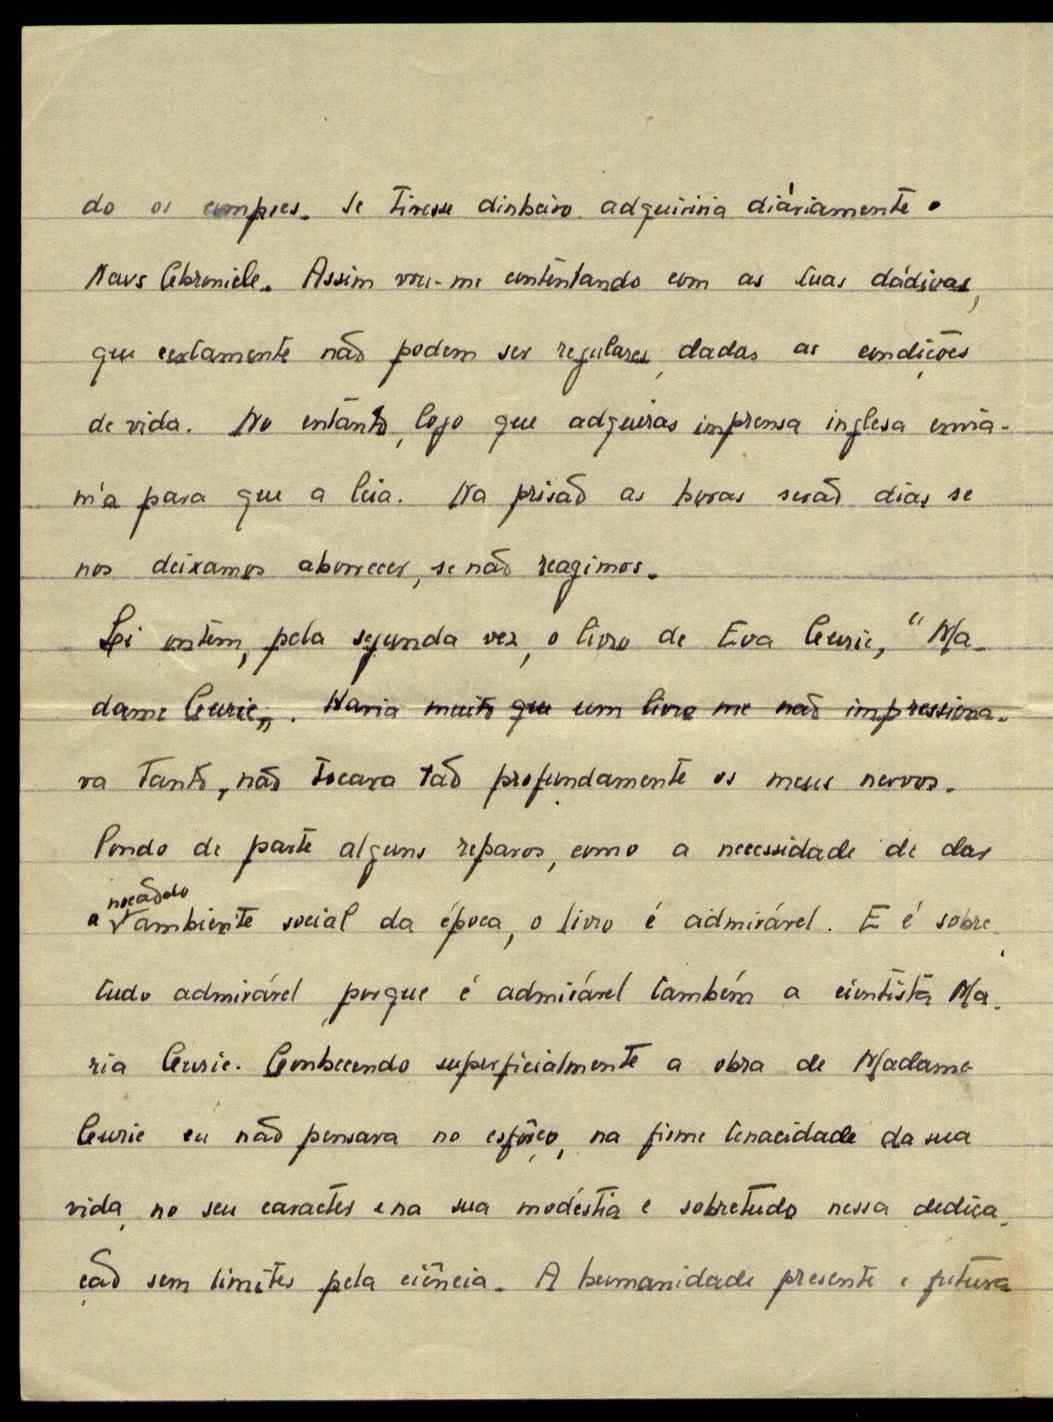 do os compres. Se tivesse dinheiro adquiriria diáriamente o
News Chronicle. Assim vou-me contentando com as tuas dádivas,
que certamente não podem ser regulares, dadas as condições
de vida. No entânto, logo que adquiras imprensa inglesa envia-
m'a para que a leia. Na prisão as horas serão dias se
nos deixamos aborrecer, se não reagimos.
Li ontem, pela segunda vez, o livro de Eva Curie, "Ma-
dame Curie„. Havia muito que um livro me não impressiona-
va tanto, não tocava tão profundamente os meus nervos.
Pondo de parte alguns reparos, como a necessidade de dar
noção do
a ambiente social da época, o livro é admirável. E é sobre-
tudo admirável porque é admirável também a cientista Ma-
ria Curie. Conhecendo superficialmente a obra de Madame
Curie eu não pensava no esfôrço, na firme tenacidade da sua
vida, no seu caracter e na sua modéstia e sobretudo nessa dedica-
ção sem limites pela ciência. A humanidade presente e futura